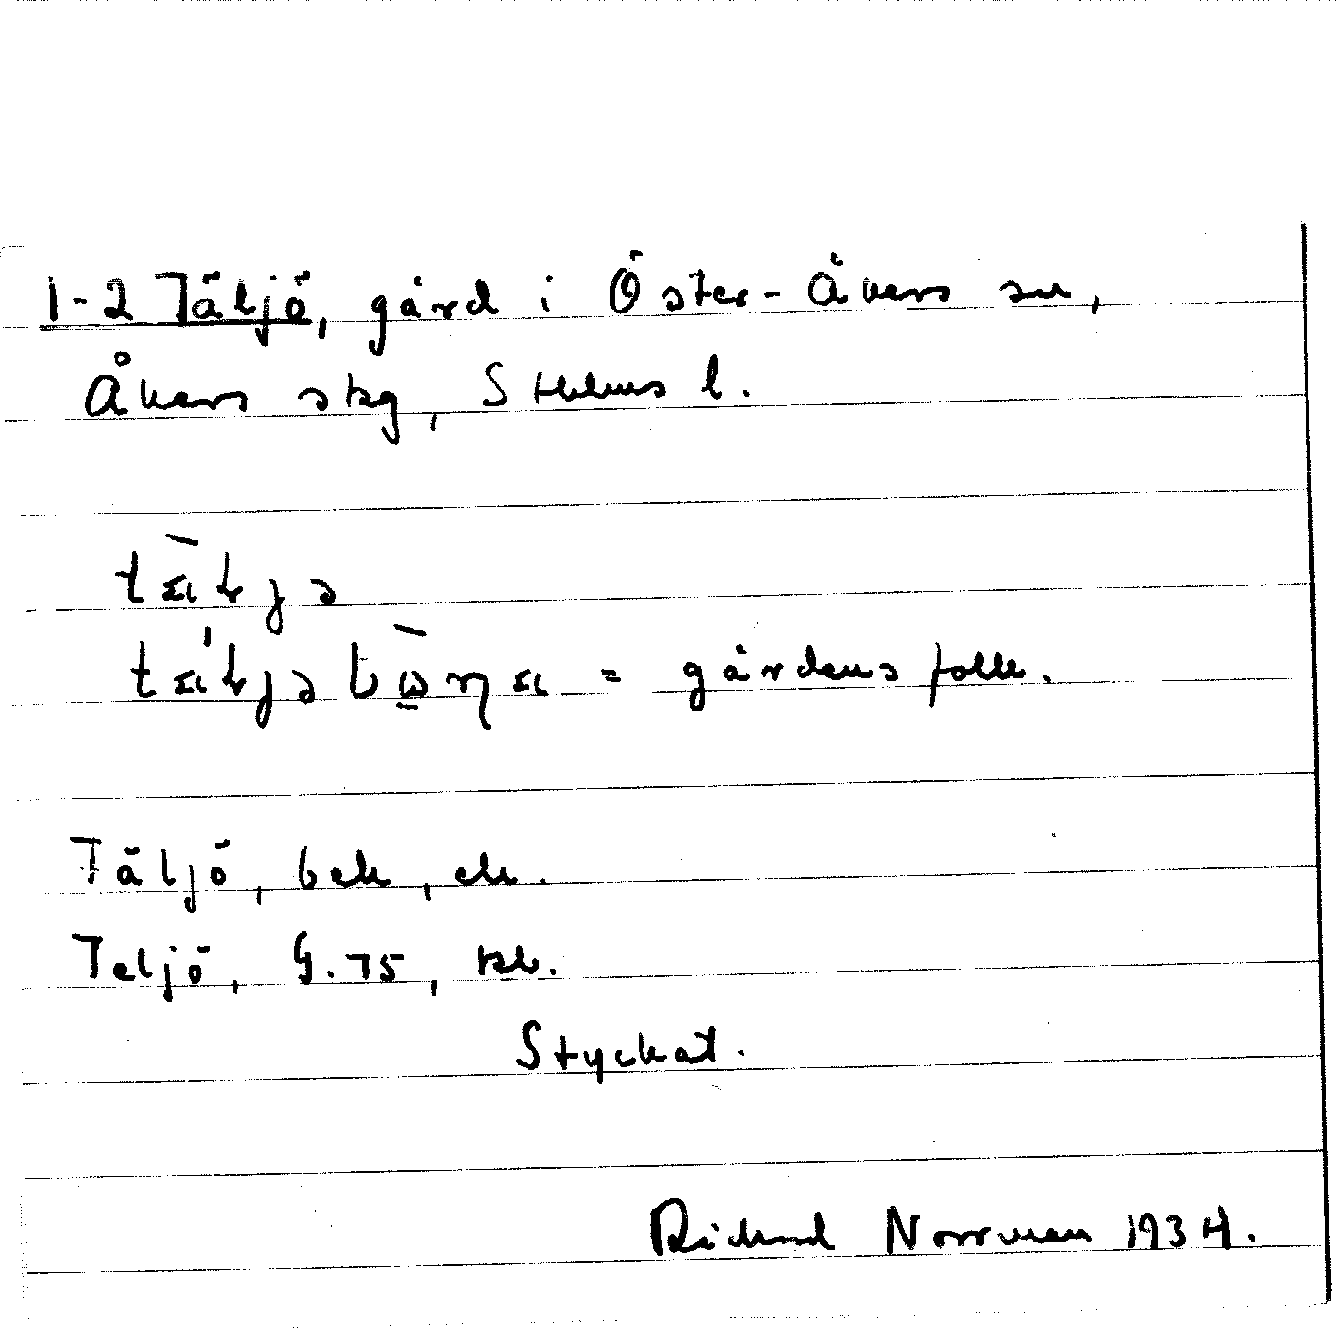 1-2 Täljö, gård i Öster-Åkers sn,
Åkers skg, Sthlms l.
Täljö, bek, ek.
Teljö, G.75, kb.
Styckat.
= gårdens folk.
Rickard Norrman 1934.